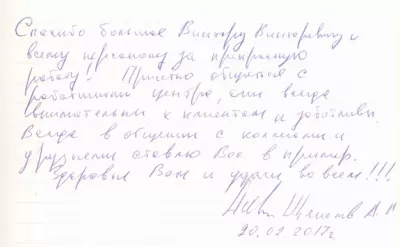 Спасибо большое Виктору Викторовичу и
всему персоналу за прекрасную
работу! Приятно общаться с
работниками центра, они всегда
внимательны к клиентам и заботливы.
Всегда в общении с коллегами и
друзьями ставлю Вас в пример.
Здоровья Вам и удачи во всем!!!
А. А.
20.02.2017г